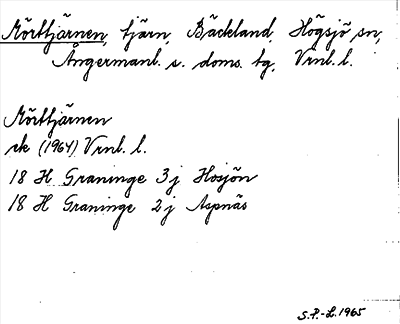 Mörttjärnen, tjärn, Bäckland, Högsjö sn,
Ångermanl. s. doms. tg, Vrnl. l.
Mörttjärnen
ek (1964) Vrnl. l.
18 H Graninge 3j Hosjön
18 H Graninge 2j Aspnäs
S.P.-L. 1965